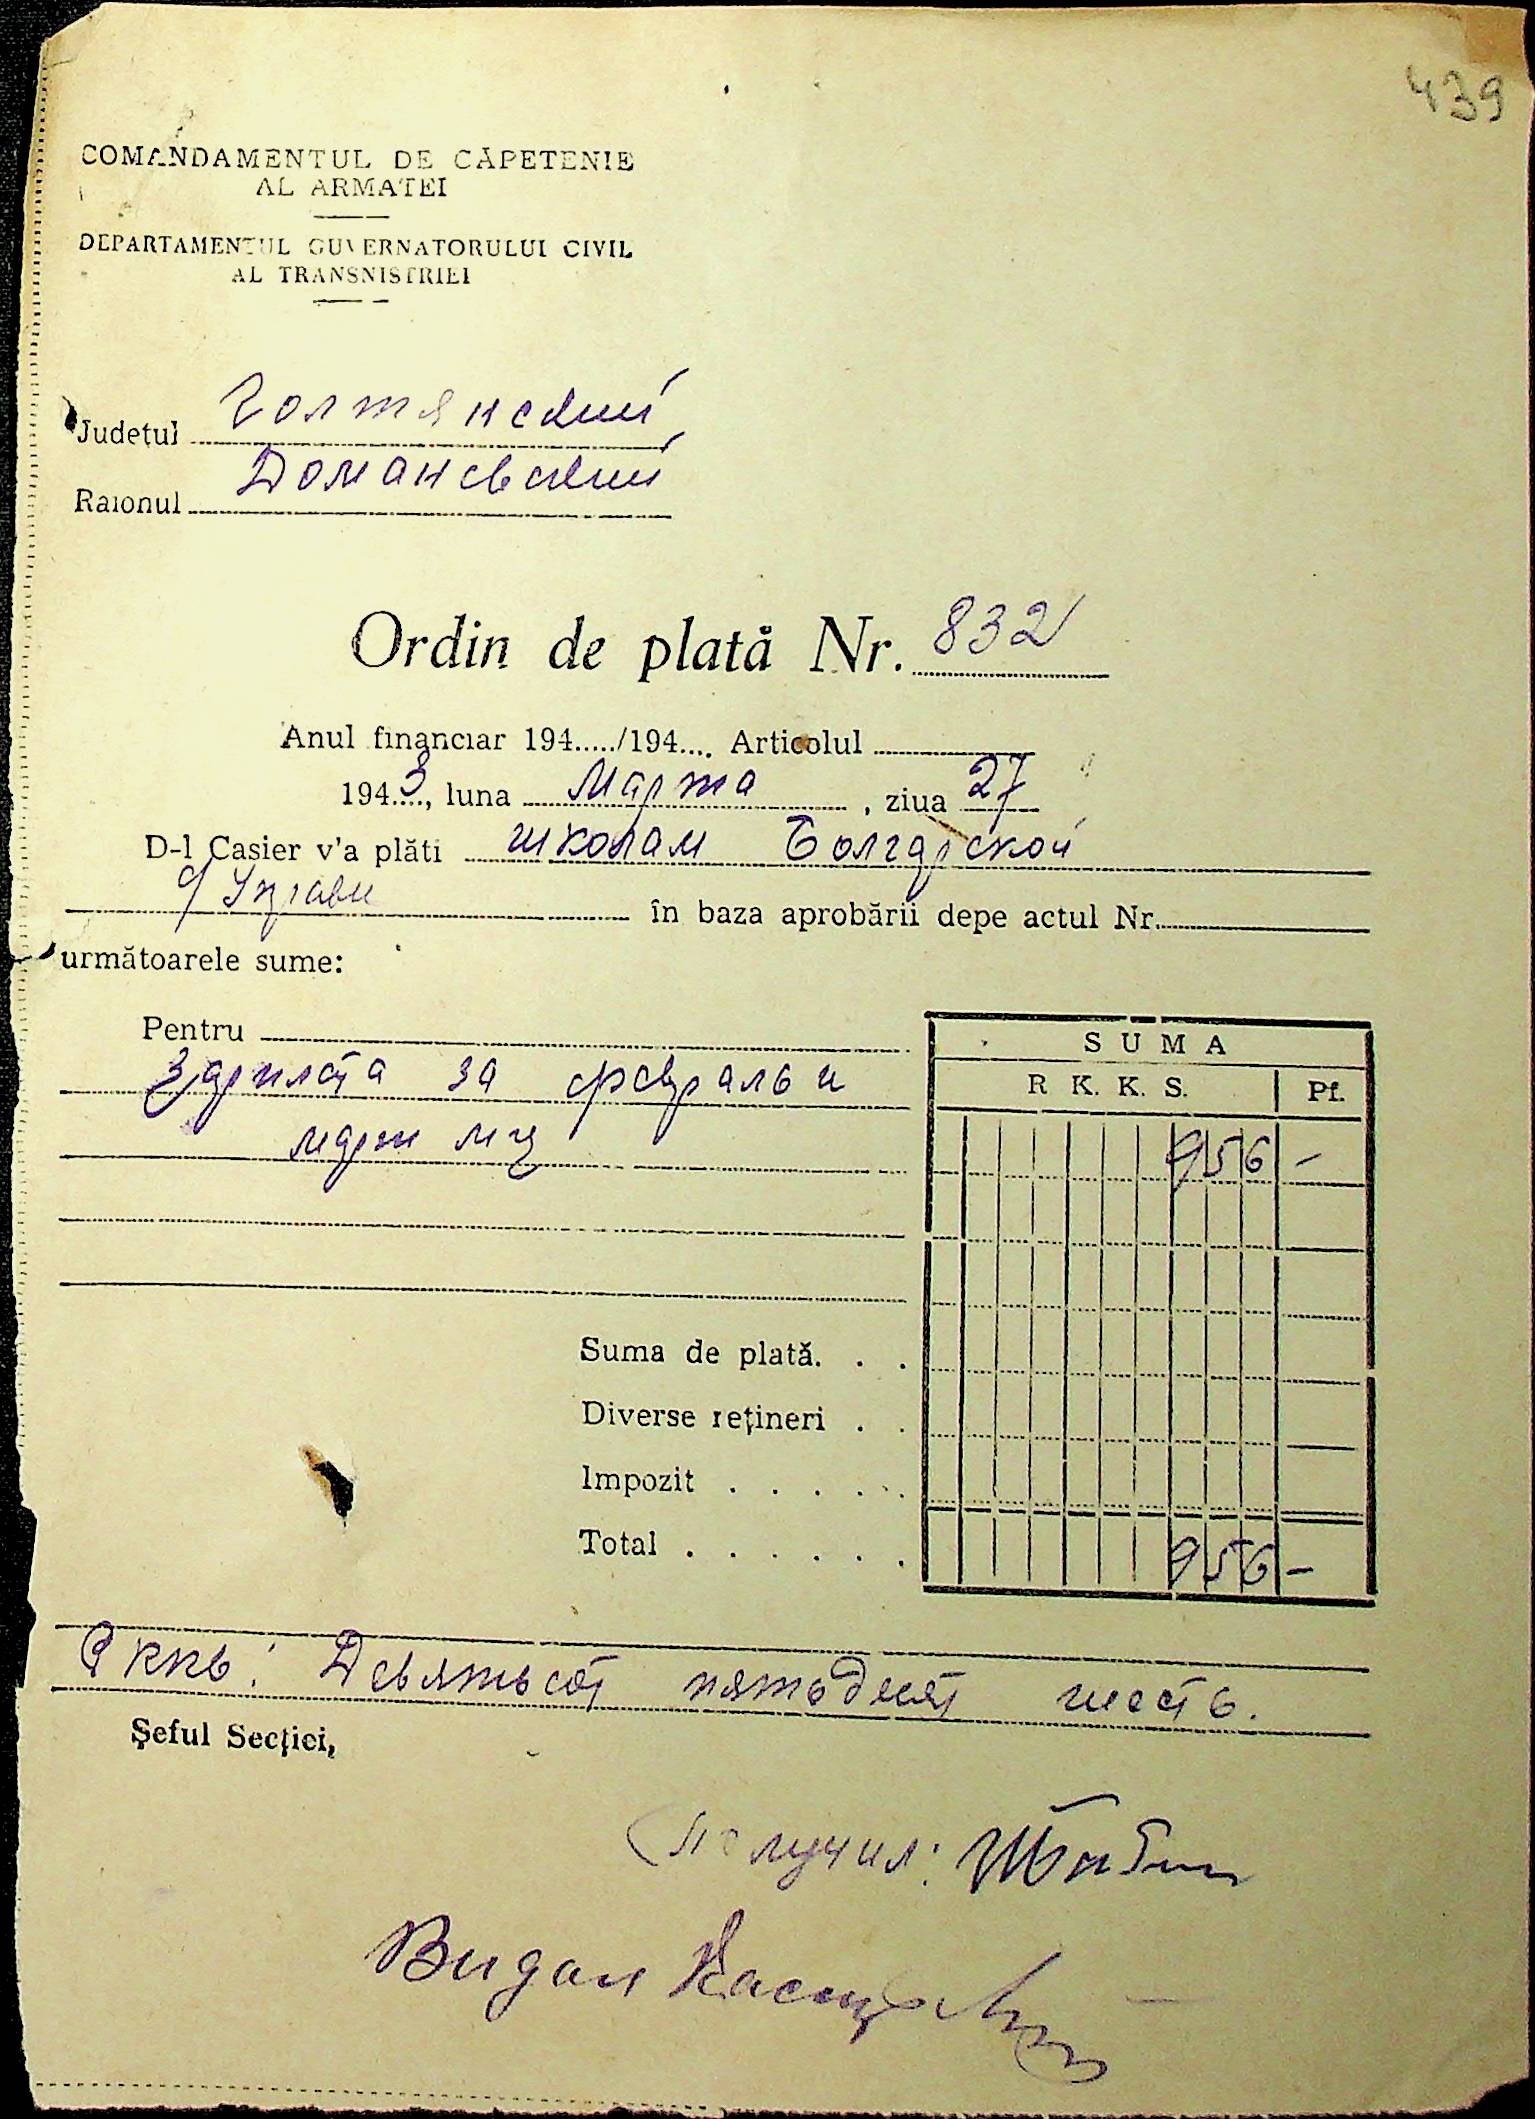 439
COMANDAMENTUL DE CĂPETENIE
AL ARMATEI
DEPARTAMENTUL GUVERNATORULUI CIVIL
AL TRANSNISTRIEI
Judeţul Голтянский
Raionul Домановский
Ordin de plată Nr. 832
Anul financiar 194...../194.... Articolul
1943, luna Марта, ziua 27
D-l Casier v'a plăti школам Болгарской
с/Управи în baza aprobării depe actul Nr.
următoarele sume:
Pentru
SUMA
Зарплата за февраль и
R K. K. S. Pf.
март мц
956 -
Suma de plată. . .
Diverse reţineri . .
Impozit . . . . .
Total . . . . . . 956 -
Девятьсот пятьдесят шесть.
Şeful Secţiei,
Получил:
Видал Касир